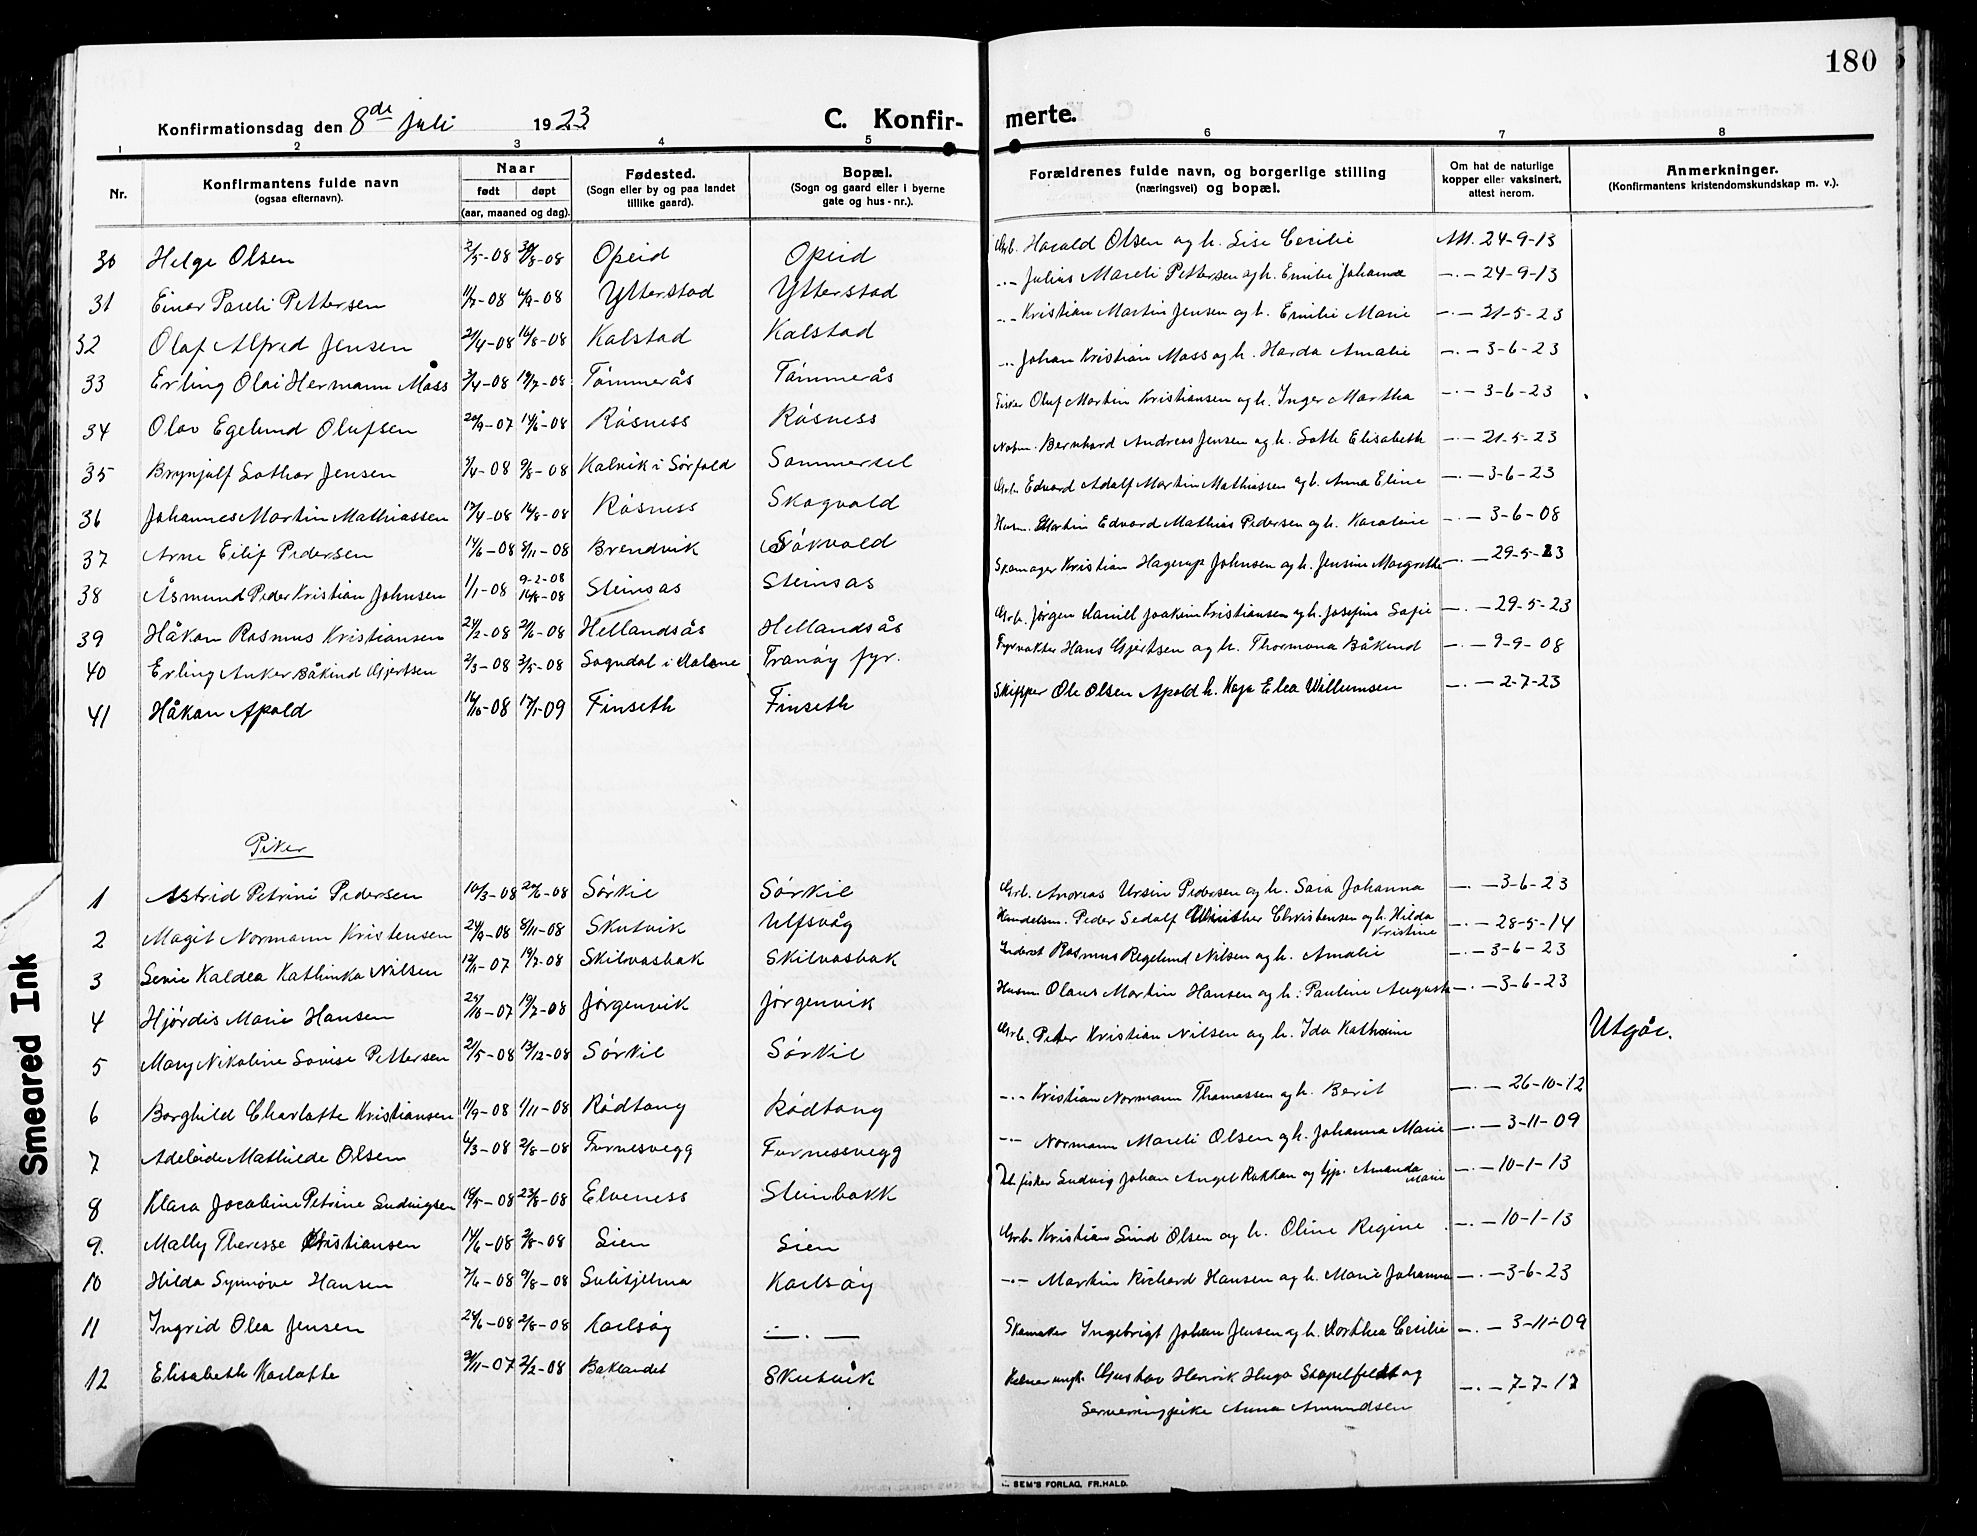 180
Konfirmationsdag den 8de juli 1923
C. Konfir- merte.
1 2 3 4 5 6 7 8
Nr.
Konfirmantens fulde navn
(ogsaa efternavn).
Naar
født døpt
(aar, maaned og dag).
Fødested.
(Sogn eller by og paa landet
tillike gaard).
Bopæl.
(Sogn og gaard eller i byerne
gate og hus-nr.).
Forældrenes fulde navn, og borgerlige stilling
(næringsvei) og bopæl.
Om hat de naturlige
kopper eller vaksinert,
attest herom.
Anmerkninger.
(Konfirmantens kristendomskundskap m. v.).
30 Helge Olsen 2/5-08 30/8-08 Opeid Opeid Grb. Harald Olsen og h. Lise Cecilie Att. 24-9-13
31 Einar Pareli Pettersen Ytterstad Ytterstad -"- Julius Mareli Pettersen og h. Emilie Johanna -.- 24-9-13
32 Olaf Alfred Jensen 21/4-08 16/8-08 Kalstad Kalstad -"- Kristian Martin Jensen og h. Emilie Marie -.- 21-5-23
33 Erling Olai Hermann Måss 3/4-08 19/7-08 Tømmerås Tømmerås -"- Johan Kristian Mass og h. Harda Amalie -.- 3-6-23
34 Olav Egelund Olufsen 20/9-07 14/6-08 Røsness Røsness Fisker Oluf Martin Kristiansen og h. Inger Martha -.- 3-6-23
35 Brynjulf Lothar Jensen 5/4-08 9/8-08 Kalvik i Sørfold Sommersel Bernhard Andreas Jensen og h. Lotte Elisabeth -.- 21-5-23
36 Johannes Martin Mathiassen 17/4-08 16/8-08 Røsness Skogvold Grb. Edvard Adolf Martin Mathiassen og h. Anna Eline -.- 3-6-23
37 Arne Eilif Pedersen 14/6-08 8/11-08 Brendvik Såkvold Husm. Martin Edvard Mathias Pedersen og h. Karoline -.- 3-6-08
38 Åsmund Peder Kristian Johnsen 1/1-08 9-2-08 16/8-08 Steinsas Steinsas Skomager Kristian Hagerup Johnsen og h. Jensine Margrethe -.- 29-5-23
39 Håkon Rasmus Kristiansen 24/2-08 21/6-08 Hellandsås Hellandsås Grb. Jørgen Daniel Joakim Kristiansen og h. Josefine Sofie -.- 29-5-23
40 Erling Anker Båkind Gjertsen 2/3-08 3/5-08 Sogndal i Dalane Tranøy fyr. Fyrvokter Hans Gjertsen og h. Thormona Båkind -.- 9-9-08
41 Håkon Apold 16/10-08 17/1-09 Finseth Finseth Skipper Ole Olsen Apold h. Kaja Elea Willumsen -.- 2-7-23
Piker
1 Astrid Petrine Pedersen 10/3-08 20/6-08 Sørkil Sørkil Grb. Andreas Ursin Pedersen og h. Sara Johanna -.- 3-6-23
2 Magit Normann Kristensen 8/11-08 Skutvik Ulfsvåg Handelsm. Peder Sedolf Winther Christensen og h. Hilda Kristine -.- 28-5-14
3 Senie Kaldea Kathinka Nilsen 12/11-07 19/7-08 Skilvasbak Skilvasbak Inderst Rasmus Regelund Nilsen og h. Amalie -.- 3-6-23
4 Hjørdis Marie Hansen 25/10-07 19/7-08 Jørgenvik Jørgenvik Husm. Olaus Martin Hansen og h. Pauline Augusta -.- 3-6-23
5 Mary Nikoline Lovise Pettersen 21/5-08 13/12-08 Sørkil Sørkil Grb. Peter Kristian Nilsen og h. Ida Kathrine Utgår.
6 Borghild Charlotte Kristiansen 11/9-08 1/11-08 Rødtang Rødtang -"- Kristian Normann Thomassen og h. Berit -.- 26-10-12
7 Adeleide Mathilde Olsen 6/3-08 2/8-08 Furnesvegg Furnessvegg -"- Normann Mareli Olsen og h. Johanna Marie -.- 3-11-09
8 Klara Jocobine Petrine Ludvigsen 19/5-08 23/8-08 Elveness Steinbakk fisker Ludvig Johan Angel Kokkan og Amanda Marie -.- 10-1-13
9. Mally Theresse Kristiansen 14/6-08 2/8-08 Lien Lien Grb. Kristian Sind Olsen og h. Oline Regine -.- 10-1-13
10 Hilda Synnøve Hansen 7/6-08 9/8-08 Sulitjelma Karlsøy -"- Martin Richard Hansen og h. Marie Johanna -.- 3-6-23
11 Ingrid Olea Jensen 24/6-08 2/8-08 Karlsøy -.- Skomaker Ingebrigt Johan Jensen og h. Dorthea Cecilie -.- 3-11-09
12 Elisabeth Karlotte 2/2-08 Baklandet Skutvik Gustav Henrik Hugo Stapelfeldt og
Serveringspike Anna Amundsen -.- 7-7-17
SEM'S FORLAG, FR.HALD.
Smeared Ink